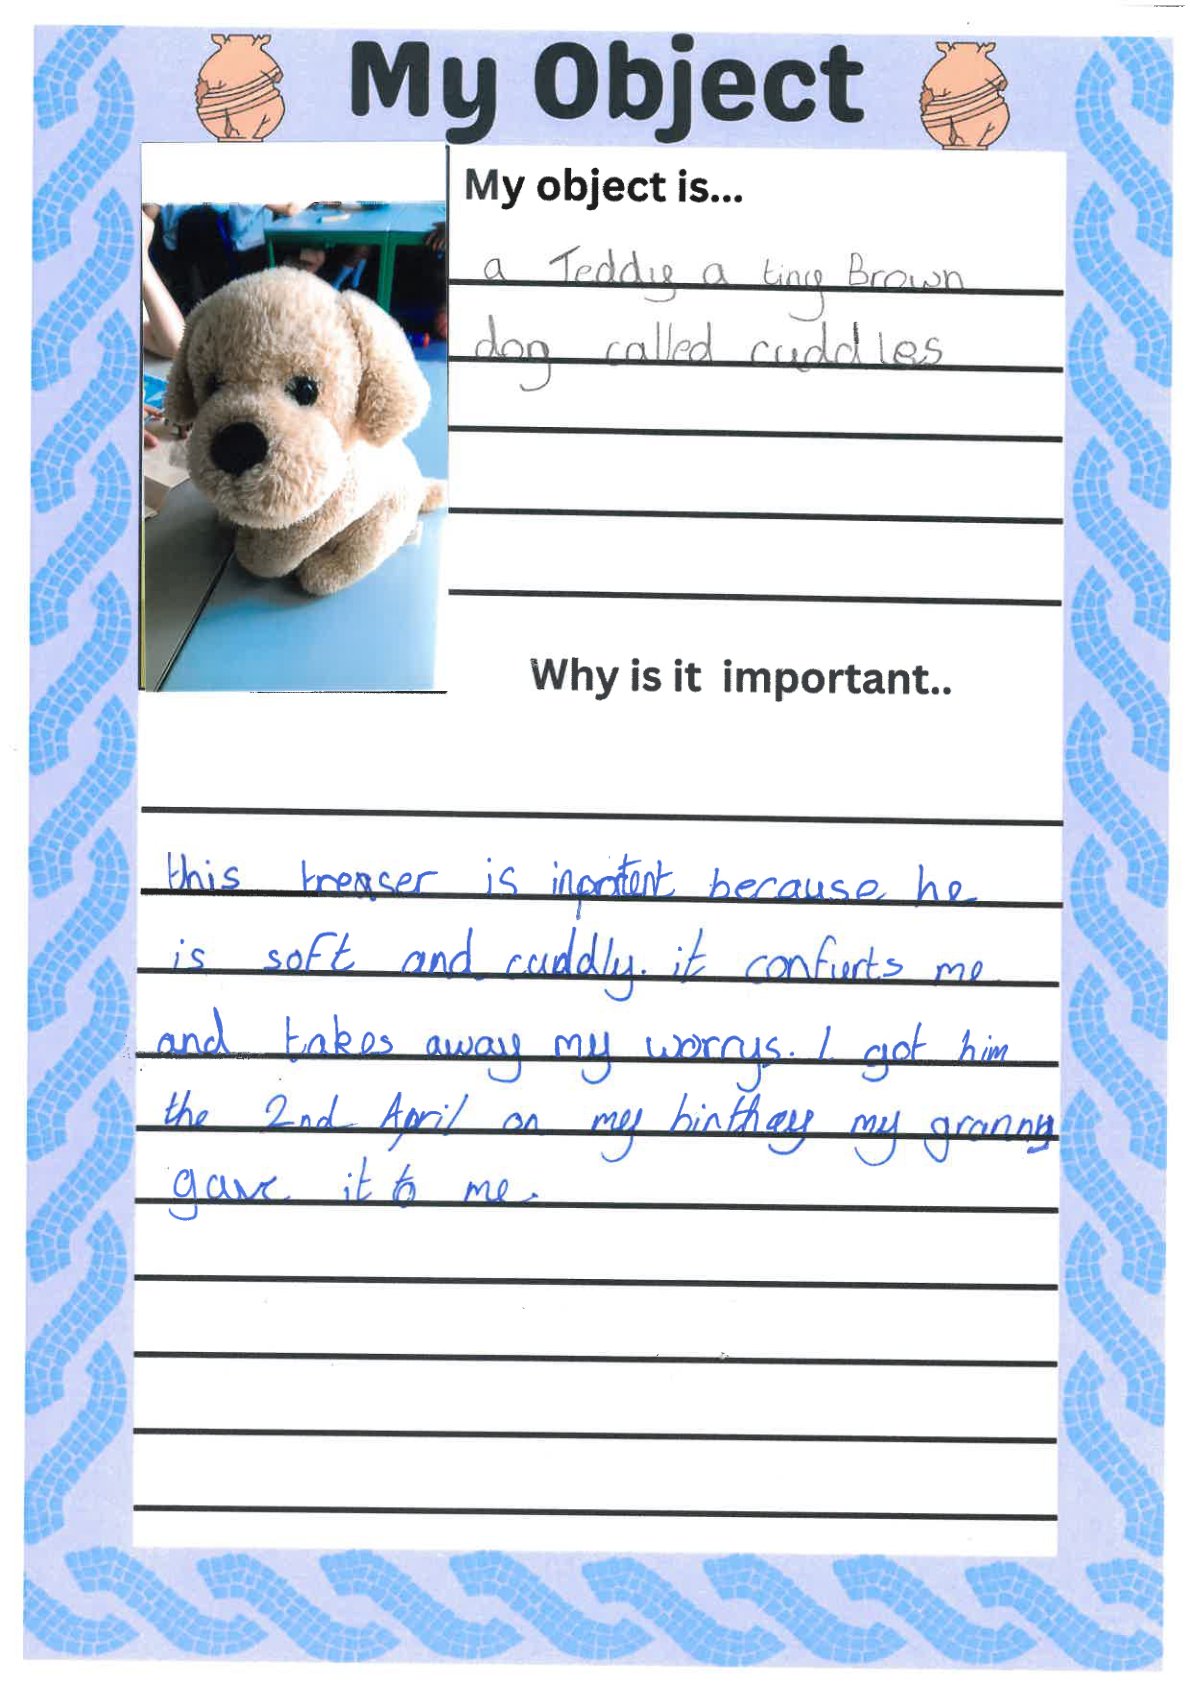 My Object
My object is...
a Teddy a tiny Brown
dog called cuddles
Why is it important..
this treaser is inportent because he
is soft and cuddly. it confurts me
and takes away my worrys. I got him
the 2nd April on my birthday my granny
gave it to me.